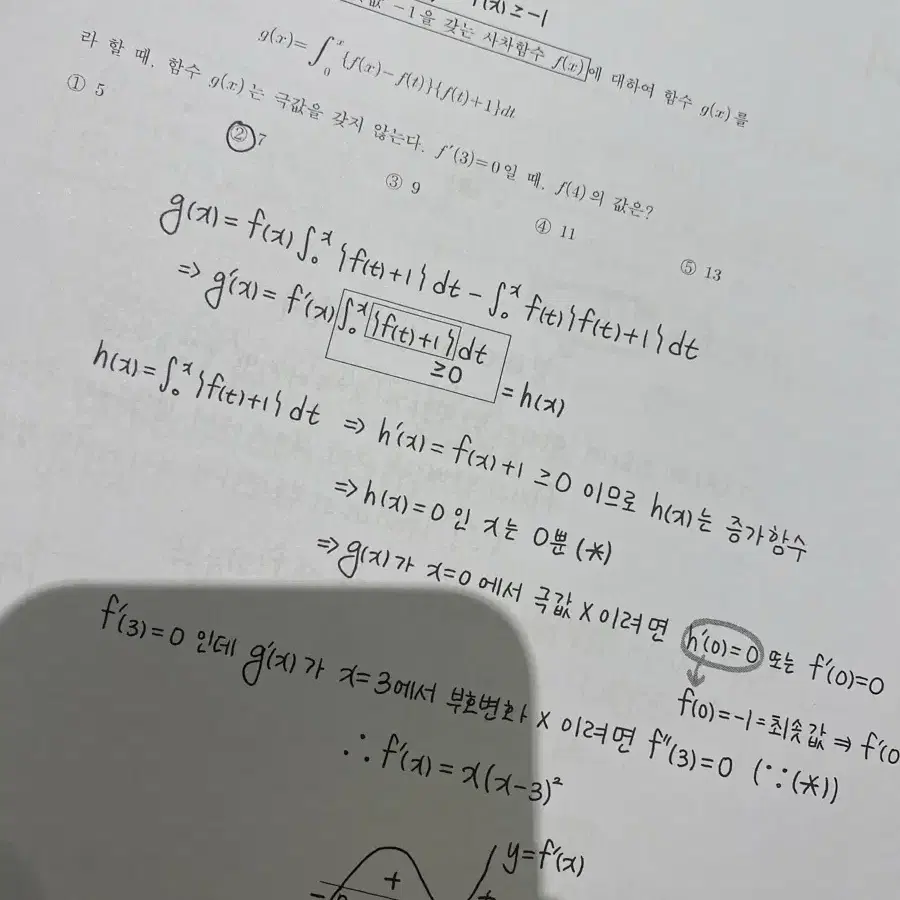 f(x) ≥ -1
-1을 갖는 사차함수 f(x)에 대하여 함수 g(x)를
g(x)=∫₀ˣ{f(x)-f(t)}{f(t)+1}dt
라 할 때, 함수 g(x)는 극값을 갖지 않는다. f'(3)=0일 때, f(4)의 값은?
① 5 ② 7 ③ 9 ④ 11 ⑤ 13
g(x) = f(x)∫₀ˣ{f(t)+1}dt - ∫₀ˣ f(t){f(t)+1}dt
⇒ g'(x) = f'(x)∫₀ˣ{f(t)+1}dt = h(x)
≥0
h(x)=∫₀ˣ{f(t)+1}dt ⇒ h'(x) = f(x)+1 ≥0 이므로 h(x)는 증가함수
⇒ h(x)=0 인 x는 0뿐 (*)
⇒ g(x)가 x=0에서 극값 X 이려면 h'(0)=0 또는 f'(0)=0
f(0)=-1=최솟값 ⇒ f'(0
f'(3)=0 인데 g'(x)가 x=3에서 부호변화 X 이려면 f''(3)=0 (∵(*))
∴ f'(x) = x(x-3)²
y=f'(x)
- + +